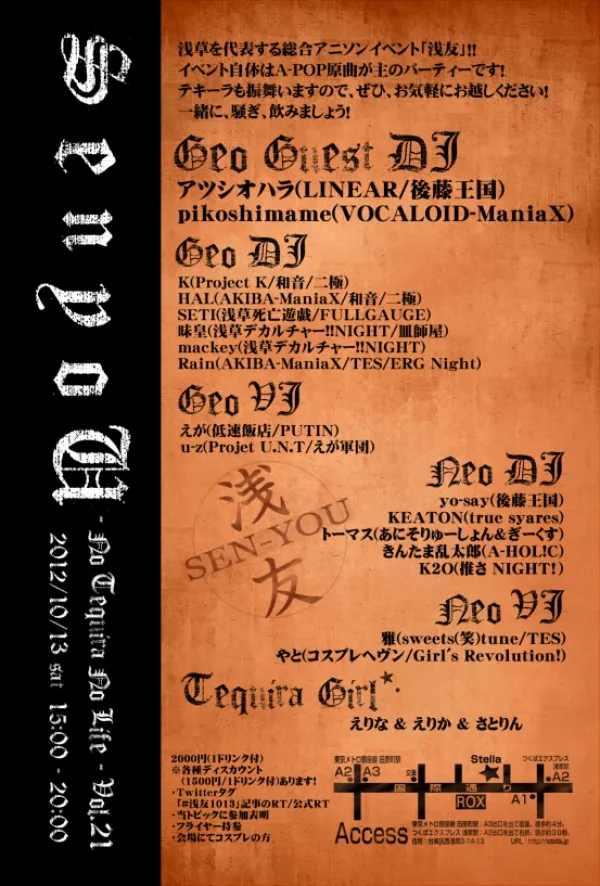 SenyoU
- No Tequira No Life - Vol.21
2012/10/13 sat 15:00 - 20:00
浅草を代表する総合アニソンイベント「浅友」!!
イベント自体はA-POP原曲が主のパーティーです!
テキーラも振舞いますので、ぜひ、お気軽にお越しください!
一緒に、騒ぎ、飲みましょう!
Geo Guest DJ
アツシオハラ(LINEAR/後藤王国)
pikoshimame(VOCALOID-ManiaX)
Geo DJ
K(Project K/和音/二極)
HAL(AKIBA-ManiaX/和音/二極)
SETI(浅草死亡遊戯/FULLGAUGE)
味皇(浅草デカルチャー!!NIGHT/皿師屋)
mackey(浅草デカルチャー!!NIGHT)
Rain(AKIBA-ManiaX/TES/ERG Night)
Geo VJ
えが(低速飯店/PUTIN)
u-z(Projet U.N.T/えが軍団)
浅
SEN-YOU
友
Neo DJ
yo-say(後藤王国)
KEATON(true syares)
トーマス(あにそりゅーしょん&ぎーくす)
きんたま乱太郎(A-HOL!C)
K2O(推さ NIGHT!)
Neo VJ
雅(sweets(笑)tune/TES)
やと(コスプレヘヴン/Girl's Revolution!)
Tequira Girl
えりな & えりか & さとりん
2000円(1ドリンク付)
※各種ディスカウント
(1500円/1ドリンク付)あります!
・Twitterタグ
「#浅友1013」記事のRT/公式RT
・当トピックに参加表明
・フライヤー持参
・会場にてコスプレの方
東京メトロ銀座線 田原町駅
A2 A3
交番
Stella
つくばエクスプレス
浅草駅
A2
国際通り
ROX
A1
Access
東京メトロ銀座線 田原町駅：A3出口を出て直進。徒歩約4分。
つくばエクスプレス 浅草駅：A2出口を出て右折。徒歩約30秒。
住所：台東区西浅草2-14-13
URL：http://stella.jp